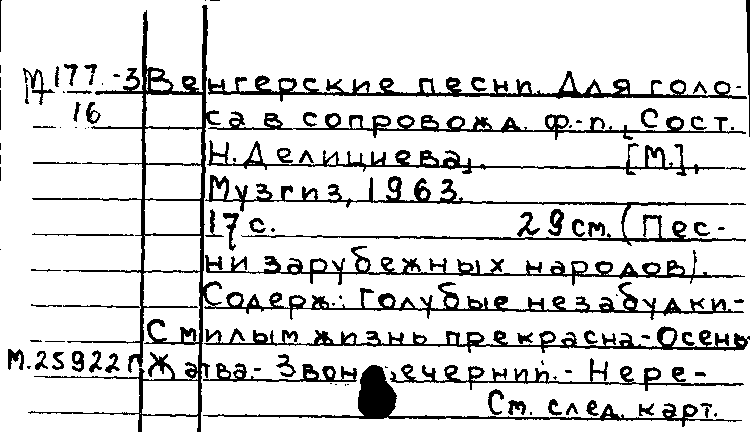 М 177-3 Венгерские песни. Для голо-
16 са в сопровожд. ф.-п. [Сост.
Н. Делициева]. [М.],
Музгиз, 1963.
17 с. 29 см. (Пес-
ни зарубежных народов).
Содерж.: Голубые незабудки.-
С милым жизнь прекрасна.-Осень
М.25922г. Жатва.- Звон вечерний.- Нере-
См. след. карт.